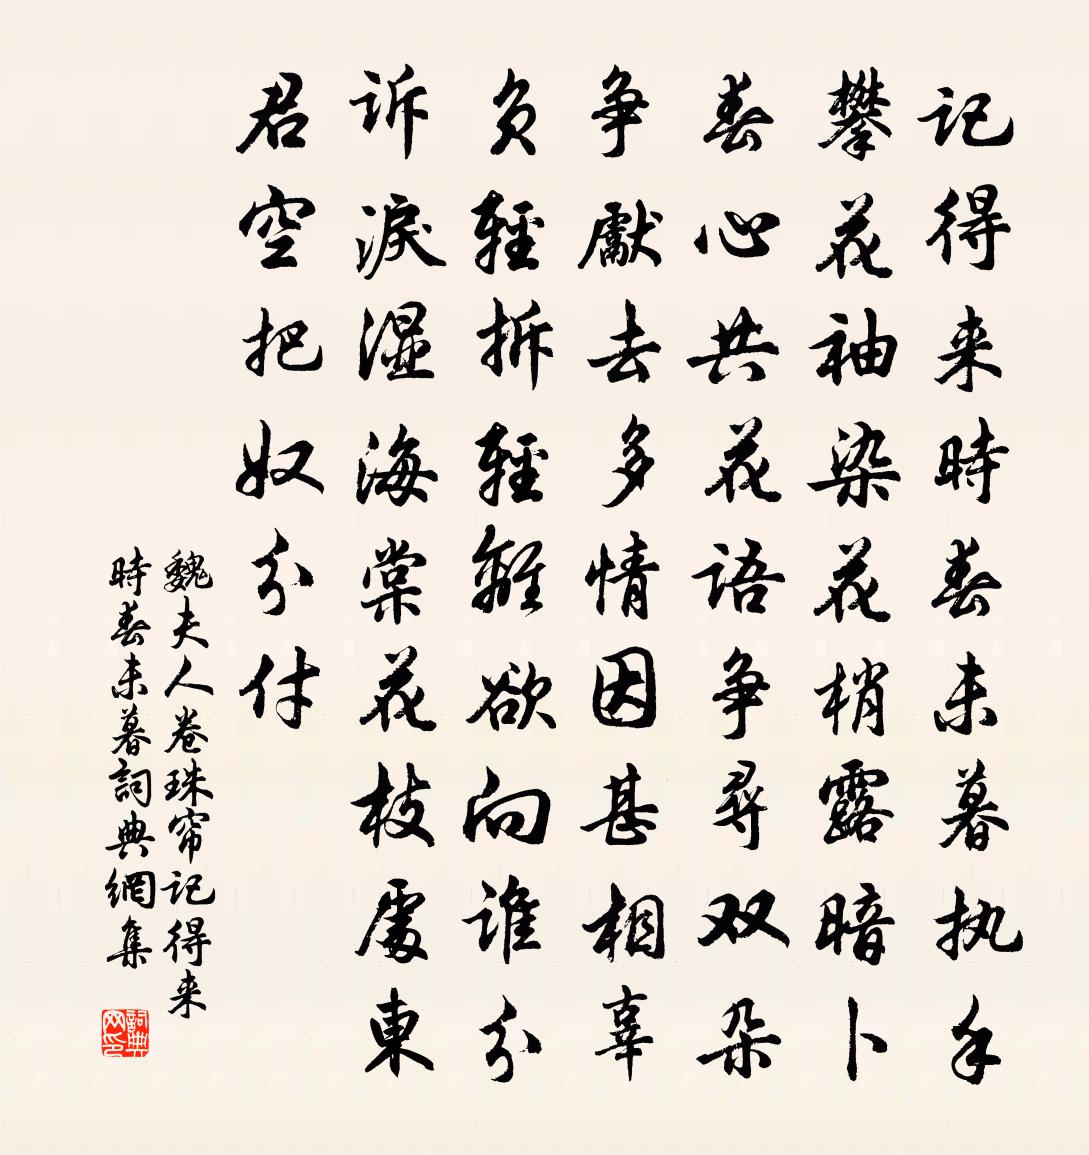 记得来時春未暮执手
攀花袖染花梢露暗卜
春心共花语争尋双朵
争獻去多情因甚相辜
负輕拆輕離欲向谁分
诉淚湿海棠花枝處東
君空把奴分付
魏夫人卷珠帘记得来
時春未暮詞典網集
詞典网印